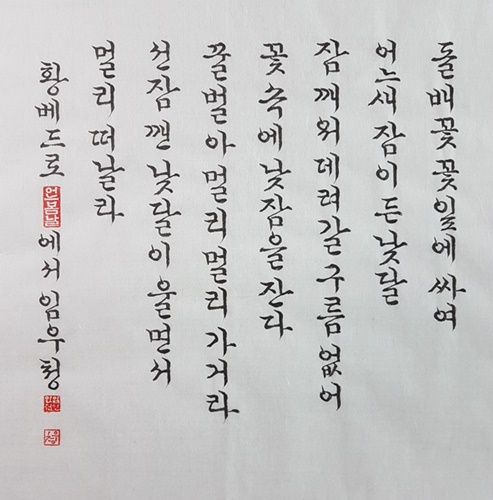 돌배꽃 꽃잎에 싸여
어느새 잠이 든 낮달
잠 깨워 데려갈 구름 없어
꽃 속에 낮잠을 잔다
꿀벌아 멀리 멀리 가거라
선잠 깬 낮달이 울면서
멀리 떠날라
황베드로 에서 임우청